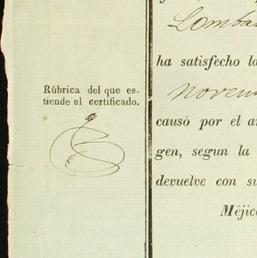 Lomba
ha satisfecho la
Rúbrica del que es-
tiende el certificado.
novem
causó por el a
gen, segun la
devuelve con su
Méjic